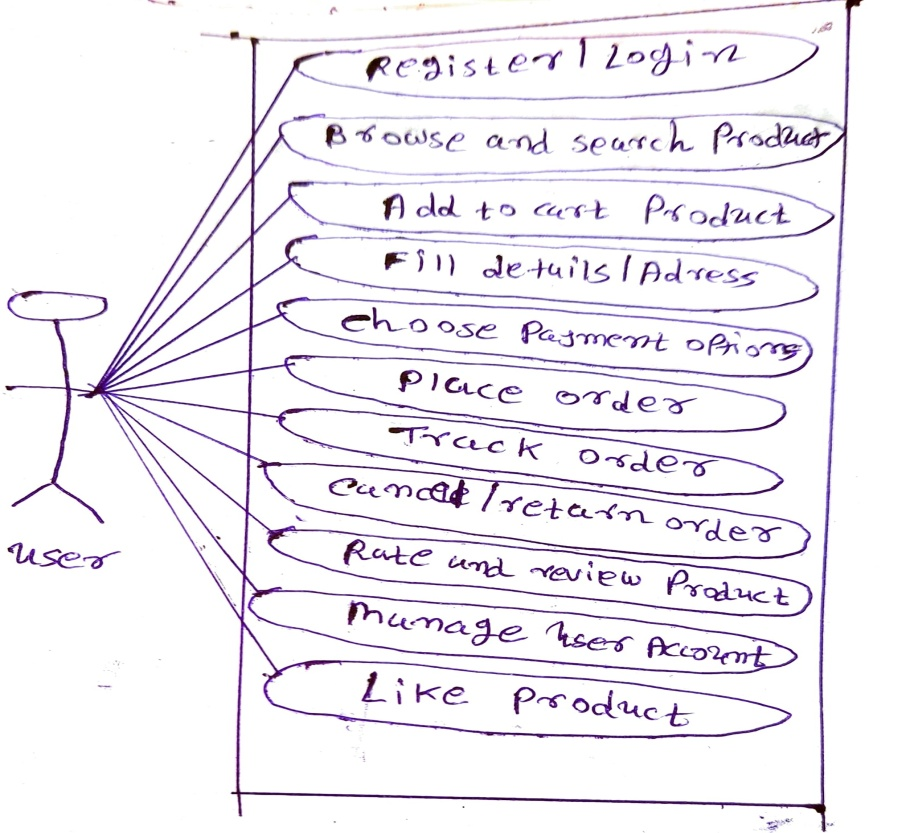 Register / Login
Browse and search Product
Add to cart Product
Fill details / Adress
choose Payment options
Place order
Track order
cancel / return order
Rate and review Product
Manage user Account
Like Product
user